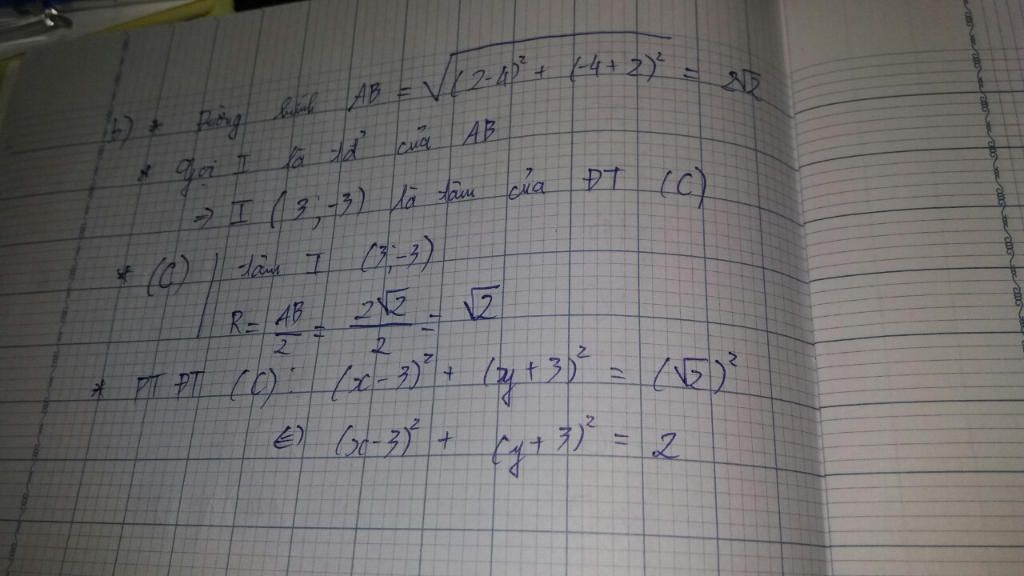 b) * Đường kính AB = √((2-4)² + (-4+2)²) = 2√2
* Gọi I là tđ của AB
⇒ I (3;-3) là tâm của ĐT (C)
* (C) | tâm I (3;-3)
R = AB/2 = 2√2/2 = √2
* PT ĐT (C): (x-3)² + (y+3)² = (√2)²
⇔ (x-3)² + (y+3)² = 2